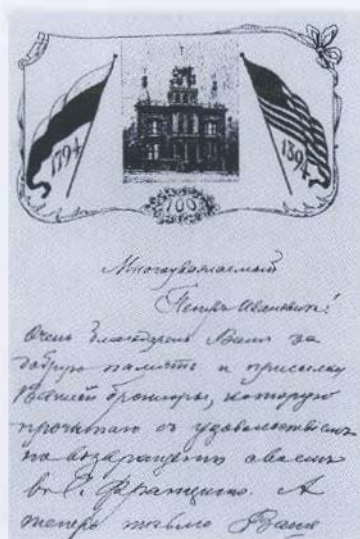 1794
1894
100
Многоуважаемый
Петръ Ивановичъ!
Очень благодаренъ Вамъ за
добрую память и присылку
Вашей брошюры, которую
прочитаю съ удовольствіемъ
по возвращеніи своемъ
въ С. Франциско. А
теперь письмо Ваше